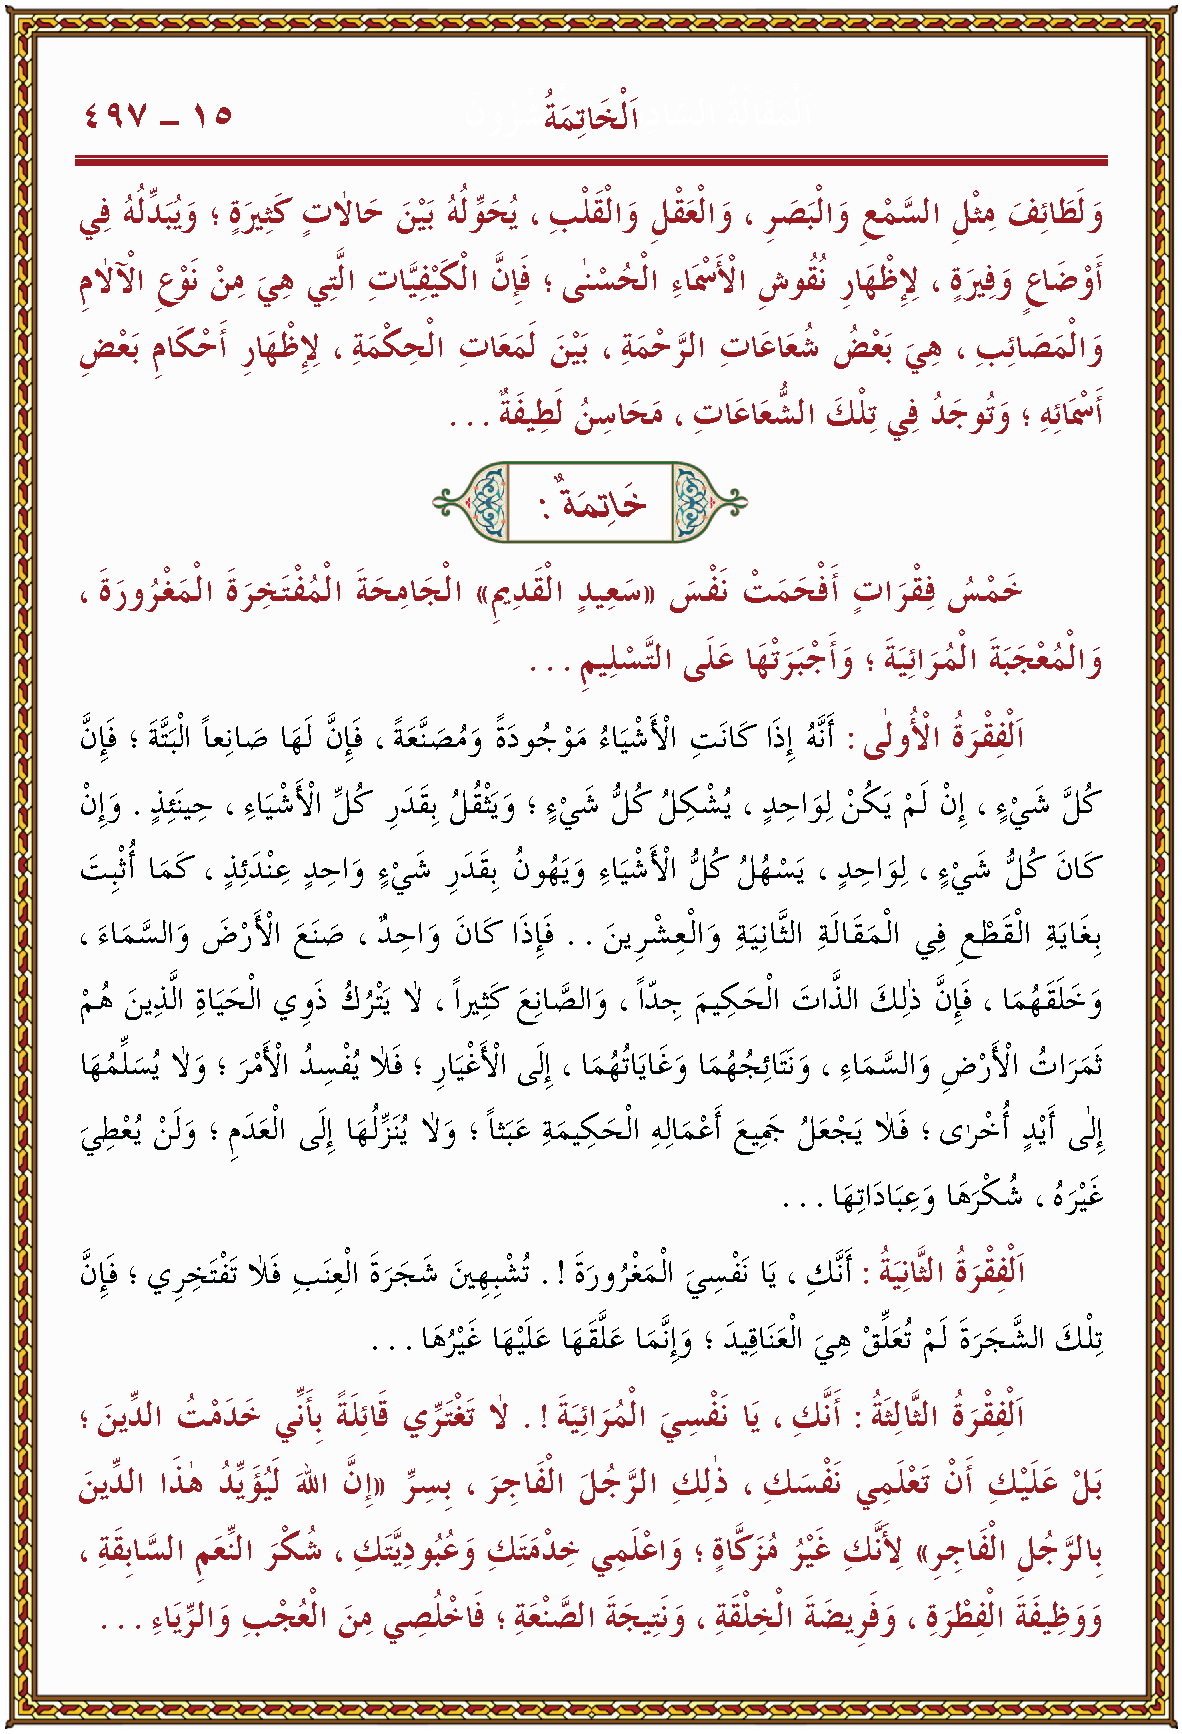 اَلْخَاتِمَةُ
٤٩٧ – ١٥
وَلَطَائِفَ مِثْلِ السَّمْعِ وَالْبَصَرِ ، وَالْعَقْلِ وَالْقَلْبِ ، يُحَوِّلُهُ بَيْنَ حَالاٰتٍ كَثِيرَةٍ ؛ وَيُبَدِّلُهُ فِي
أَوْضَاعٍ وَفِيرَةٍ ، لِإِظْهَارِ نُقُوشِ الْأَسْمَاءِ الْحُسْنٰى ؛ فَإِنَّ الْكَيْفِيَّاتِ الَّتِي هِيَ مِنْ نَوْعِ الْآلاٰمِ
وَالْمَصَائِبِ ، هِيَ بَعْضُ شُعَاعَاتِ الرَّحْمَةِ ، بَيْنَ لَمَعَاتِ الْحِكْمَةِ ، لِإِظْهَارِ أَحْكَامِ بَعْضِ
أَسْمَائِهِ ؛ وَتُوجَدُ فِي تِلْكَ الشُّعَاعَاتِ ، مَحَاسِنُ لَطِيفَةٌ . . .
خَاتِمَةٌ :
خَمْسُ فِقْرَاتٍ أَفْحَمَتْ نَفْسَ «سَعِيدٍ الْقَدِيمِ» الْجَامِحَةَ الْمُفْتَخِرَةَ الْمَغْرُورَةَ ،
وَالْمُعْجَبَةَ الْمُرَائِيَةَ ؛ وَأَجْبَرَتْهَا عَلَى التَّسْلِيمِ . . .
اَلْفِقْرَةُ الْأُولٰى : أَنَّهُ إِذَا كَانَتِ الْأَشْيَاءُ مَوْجُودَةً وَمُصَنَّعَةً ، فَإِنَّ لَهَا صَانِعاً الْبَتَّةَ ؛ فَإِنَّ
كُلَّ شَيْءٍ ، إِنْ لَمْ يَكُنْ لِوَاحِدٍ ، يُشْكِلُ كُلُّ شَيْءٍ ؛ وَيَثْقُلُ بِقَدَرِ كُلِّ الْأَشْيَاءِ ، حِينَئِذٍ . وَإِنْ
كَانَ كُلُّ شَيْءٍ ، لِوَاحِدٍ ، يَسْهُلُ كُلُّ الْأَشْيَاءِ وَيَهُونُ بِقَدَرِ شَيْءٍ وَاحِدٍ عِنْدَئِذٍ ، كَمَا أُثْبِتَ
بِغَايَةِ الْقَطْعِ فِي الْمَقَالَةِ الثَّانِيَةِ وَالْعِشْرِينَ . . فَإِذَا كَانَ وَاحِدٌ ، صَنَعَ الْأَرْضَ وَالسَّمَاءَ ،
وَخَلَقَهُمَا ، فَإِنَّ ذٰلِكَ الذَّاتَ الْحَكِيمَ جِدّاً ، وَالصَّانِعَ كَثِيراً ، لاٰ يَتْرُكُ ذَوِي الْحَيَاةِ الَّذِينَ هُمْ
ثَمَرَاتُ الْأَرْضِ وَالسَّمَاءِ ، وَنَتَائِجُهُمَا وَغَايَاتُهُمَا ، إِلَى الْأَغْيَارِ ؛ فَلاٰ يُفْسِدُ الْأَمْرَ ؛ وَلاٰ يُسَلِّمُهَا
إِلٰى أَيْدٍ أُخْرٰى ؛ فَلاٰ يَجْعَلُ جَمِيعَ أَعْمَالِهِ الْحَكِيمَةِ عَبَثاً ؛ وَلاٰ يُنَزِّلُهَا إِلَى الْعَدَمِ ؛ وَلَنْ يُعْطِيَ
غَيْرَهُ ، شُكْرَهَا وَعِبَادَاتِهَا . . .
اَلْفِقْرَةُ الثَّانِيَةُ : أَنَّكِ ، يَا نَفْسِيَ الْمَغْرُورَةَ ! . تُشْبِهِينَ شَجَرَةَ الْعِنَبِ فَلاٰ تَفْتَخِرِي ؛ فَإِنَّ
تِلْكَ الشَّجَرَةَ لَمْ تُعَلِّقْ هِيَ الْعَنَاقِيدَ ؛ وَإِنَّمَا عَلَّقَهَا عَلَيْهَا غَيْرُهَا . . .
اَلْفِقْرَةُ الثَّالِثَةُ : أَنَّكِ ، يَا نَفْسِيَ الْمُرَائِيَةَ ! . لاٰ تَغْتَرِّي قَائِلَةً بِأَنِّي خَدَمْتُ الدِّينَ ؛
بَلْ عَلَيْكِ أَنْ تَعْلَمِي نَفْسَكِ ، ذٰلِكِ الرَّجُلَ الْفَاجِرَ ، بِسِرِّ «إِنَّ اللهَ لَيُؤَيِّدُ هٰذَا الدِّينَ
بِالرَّجُلِ الْفَاجِرِ» لِأَنَّكِ غَيْرُ مُزَكَّاةٍ ؛ وَاعْلَمِي خِدْمَتَكِ وَعُبُودِيَّتَكِ ، شُكْرَ النِّعَمِ السَّابِقَةِ ،
وَوَظِيفَةَ الْفِطْرَةِ ، وَفَرِيضَةَ الْخِلْقَةِ ، وَنَتِيجَةَ الصَّنْعَةِ ؛ فَاخْلُصِي مِنَ الْعُجْبِ وَالرِّيَاءِ . . .